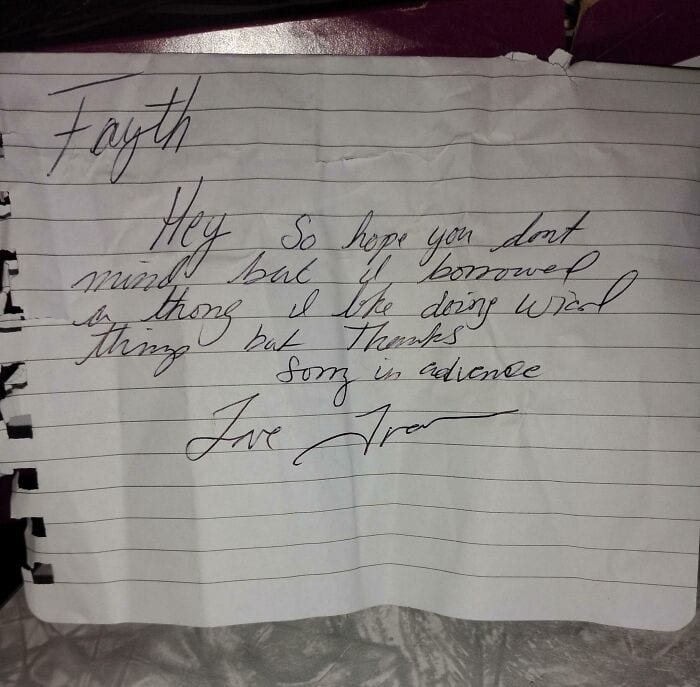 Fayth
Hey So hope you dont
mind but I borrowed
a thong I like doing wierd
things but Thanks
Sorry in advence
Love